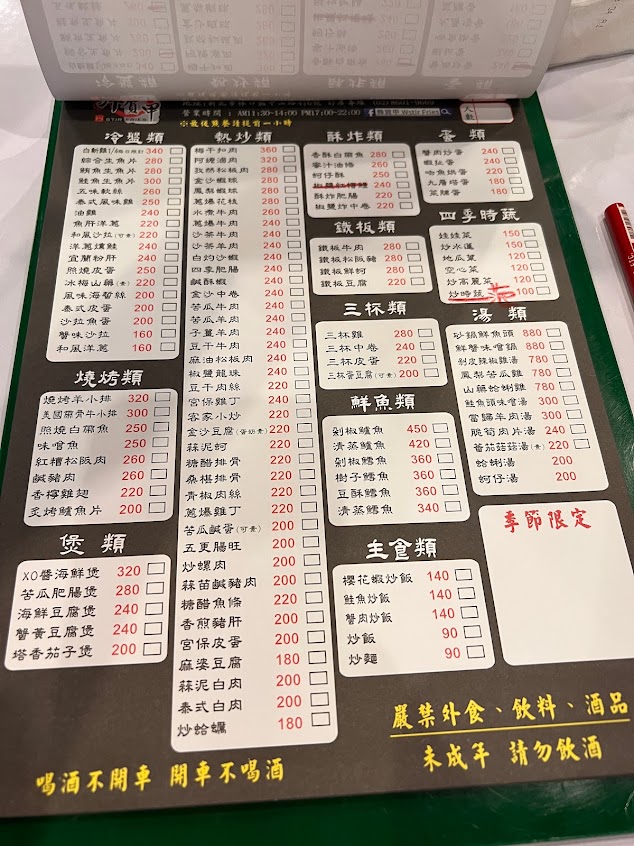 營業時間：AM11:30-14:00 PM17:00-22:00
※最後點餐請提前一小時
人數
冷盤類
白斬雞1/4 340
綜合生魚片 280
鮪魚生魚片 280
鮭魚生魚片 300
五味軟絲 260
泰式風味雞 250
油雞 240
魚肝洋蔥 220
和風沙拉(可素) 220
洋蔥燻鮭 240
宜蘭粉肝 240
照燒皮蛋 250
冰梅山藥(素) 220
風味海蜇絲 200
泰式皮蛋 200
沙拉魚蛋 200
蟹味沙拉 160
和風洋蔥 160
燒烤類
燒烤羊小排 320
美國帶骨牛小排 300
照燒白帶魚 250
味噌魚 250
紅糟松阪肉 260
鹹豬肉 260
香檸雞翅 220
炙烤鱸魚片 200
煲類
XO醬海鮮煲 320
苦瓜肥腸煲 280
海鮮豆腐煲 240
蟹黃豆腐煲 240
塔香茄子煲 200
熱炒類
梅干扣肉 360
阿嬤滷肉 320
孜然松板肉 280
金沙蝦球 280
鳳梨蝦球 280
蔥爆花枝 280
水煮牛肉 260
蔥爆牛肉 240
沙茶牛肉 240
沙茶羊肉 240
白灼沙蝦 240
四季肥腸 240
鹹酥蝦 240
金沙中卷 240
苦瓜牛肉 240
苦瓜羊肉 240
子薑羊肉 240
豆干牛肉 240
麻油松板肉 240
椒鹽龍珠 240
豆干肉絲 220
宮保雞丁 240
客家小炒 220
金沙豆腐(蛋奶素) 200
蒜泥蚵 220
糖醋排骨 220
桑椹排骨 220
青椒肉絲 220
蔥爆雞丁 220
苦瓜鹹蛋(可素) 200
五更腸旺 200
炒螺肉 200
蒜苗鹹豬肉 200
糖醋魚條 220
香煎豬肝 200
宮保皮蛋 200
麻婆豆腐 180
蒜泥白肉 200
泰式白肉 200
炒蛤蠣 180
酥炸類
香酥白帶魚 280
蜜汁油條 250
蚵仔酥 250
240
酥炸肥腸 240
椒鹽中卷 220
鐵板類
鐵板牛肉 280
鐵板松板豬 280
鐵板鮮蚵 220
鐵板豆腐 220
三杯類
三杯雞 280
三杯中卷 240
三杯皮蛋 220
三杯蛋豆腐(可素) 200
鮮魚類
剁椒鱸魚 450
清蒸鱸魚 420
剁椒鱈魚 360
樹子鱈魚 360
豆酥鱈魚 360
清蒸鱈魚 340
主食類
櫻花蝦炒飯 140
鮭魚炒飯 140
蟹肉炒飯 140
炒飯 90
炒麵 90
蛋類
蟹肉炒蛋 240
蝦仁蛋 240
哈魚烘蛋 220
九層塔蛋 180
菜脯蛋 180
四季時蔬
娃娃菜 150
炒水蓮 150
地瓜葉 120
空心菜 120
炒高麗菜 120
炒時蔬 100
湯類
砂鍋鮮魚頭 880
鮮蟹味噌鍋 880
剝皮辣椒雞湯 780
鳳梨苦瓜雞 780
山藥蛤蜊雞 780
鮭魚頭味噌湯 300
當歸羊肉湯 300
脆筍肉片湯 240
番茄菇菇湯(素) 220
蛤蜊湯 200
蚵仔湯 200
季節限定
嚴禁外食、飲料、酒品
未成年 請勿飲酒
喝酒不開車 開車不喝酒